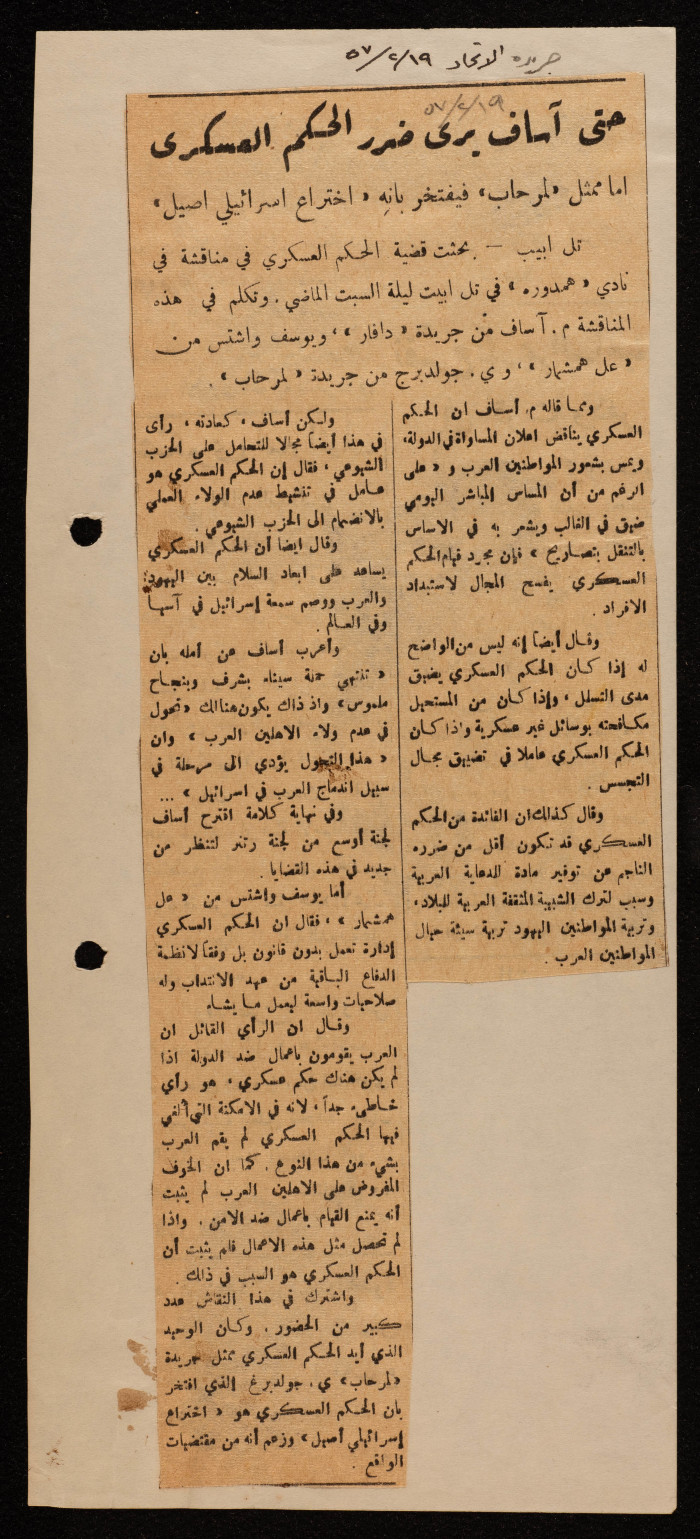 جريده الاتحاد ٥٧/٢/١٩
٥٧/٢/١٩
حتى آساف يرى ضرر الحكم العسكرى
اما ممثل «لمرحاب» فيفتخر بانه « اختراع اسرائيلي اصيل»
تل ابيب — بحثت قضية الحكم العسكري في مناقشة في
نادي « همدوره » في تل ابيب ليلة السبت الماضي . وتكلم في هذه
المناقشة م . آساف من جريدة « دافار » ، ويوسف واشتس من
« عل همشمار » ، و ي . جولدبرج من جريدة « لمرحاب » .
ومما قاله م. أساف ان الحكم
العسكري يناقض اعلان المساواة في الدولة،
ويمس بشعور المواطنين العرب و « على
الرغم من أن المساس المباشر اليومي
ضيق في الغالب ويشعر به في الاساس
بالتنقل بتصاريح » فإن مجرد قيام الحكم
العسكري يفسح المجال لاستبداد
الافراد .
وقال أيضاً إنه ليس من الواضح
له إذا كان الحكم العسكري يضيق
مدى التسلل ، وإذا كان من المستحيل
مكافحته بوسائل غير عسكرية واذا كان
الحكم العسكري عاملا في تضييق مجال
التجسس .
وقال كذلك ان الفائدة من الحكم
العسكري قد تكون أقل من ضرره
الناجم عن توفير مادة للدعاية العربية
وسبب لترك الشبيبة المثقفة العربية للبلاد،
وتربية المواطنين اليهود تربية سيئة حيال
المواطنين العرب .
ولكن أساف ، كعادته ، رأى
في هذا أيضاً مجالا للتحامل على الحزب
الشيوعي ، فقال إن الحكم العسكري هو
عامل في تنشيط عدم الولاء العملي
بالانضمام الى الحزب الشيوعي .
وقال ايضا أن الحكم العسكري
يساعد على ابعاد السلام بين اليهود
والعرب ووصم سمعة إسرائيل في آسيا
وفي العالم .
وأعرب أساف عن أمله بان
« تنتهي حملة سيناء بشرف وبنجاح
ملموس » واذ ذاك يكون هنالك « تحول
في عدم ولاء الاهلين العرب » وان
« هذا التحول يؤدي الى مرحلة في
سبيل اندماج العرب في اسرائيل » ...
وفي نهاية كلامة اقترح أساف
لجنة أوسع من لجنة رتنر لتنظر من
جديد في هذه القضايا .
أما يوسف واشتس من « عل
همشمار » ، فقال ان الحكم العسكري
إدارة تعمل بدون قانون بل وفقاً لانظمة
الدفاع الباقية من عهد الانتداب وله
صلاحيات واسعة ليعمل ما يشاء
وقال ان الرأي القائل ان
العرب يقومون باعمال ضد الدولة اذا
لم يكن هناك حكم عسكري ، هو رأي
خاطىء جداً ، لانه في الامكنة التي ألغي
فيها الحكم العسكري لم يقم العرب
بشيء من هذا النوع . كما ان الخوف
المفروض على الاهلين العرب لم يثبت
أنه يمنع القيام باعمال ضد الامن . واذا
لم تحصل مثل هذه الاعمال فلم يثبت أن
الحكم العسكري هو السبب في ذلك .
واشترك في هذا النقاش عدد
كبير من الحضور . وكان الوحيد
الذي أيد الحكم العسكري ممثل جريدة
«لمرحاب» ي . جولدبرغ الذي افتخر
بان الحكم العسكري هو « اختراع
إسرائيلي أصيل » وزعم أنه من مقتضيات
الواقع .